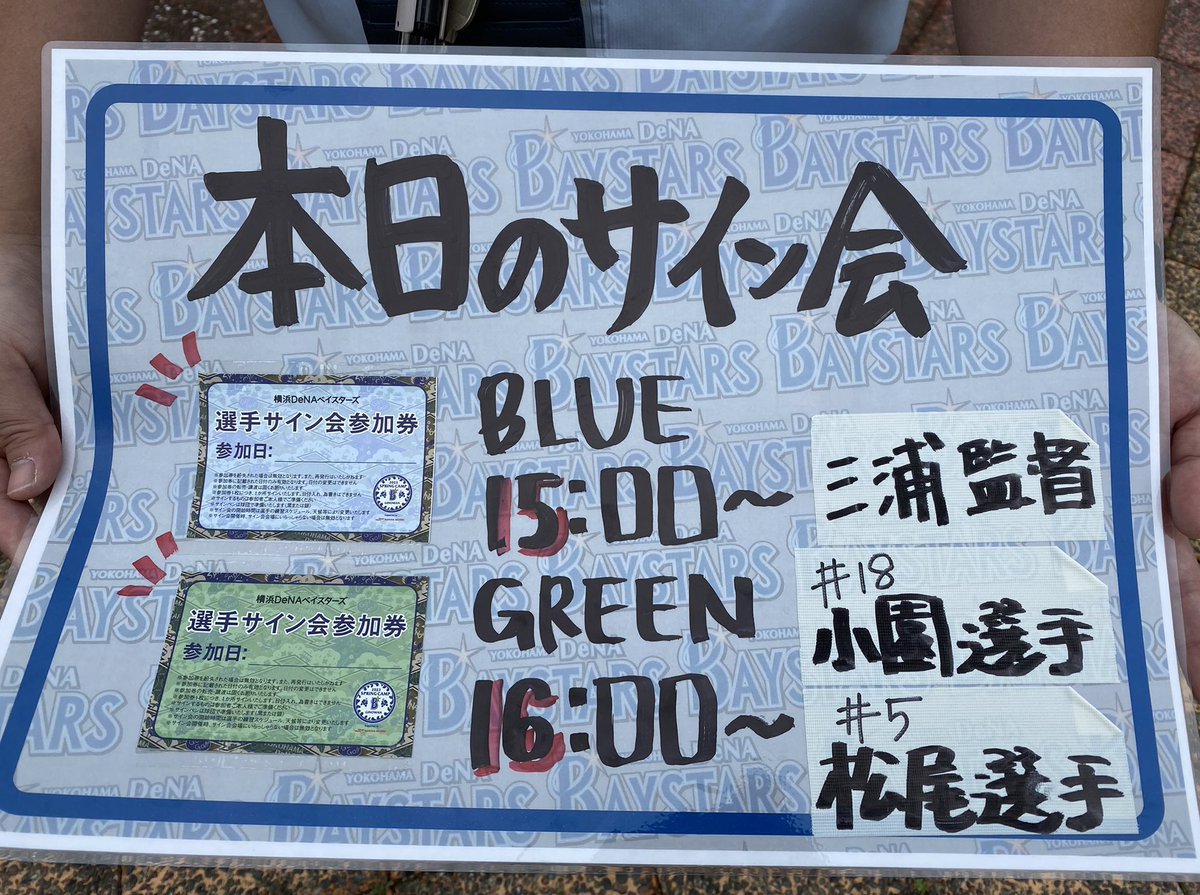 本日のサイン会
横浜DeNAベイスターズ
選手サイン会参加券
参加日:
BLUE
15:00~
横浜DeNAベイスターズ
選手サイン会参加券
参加日:
GREEN
16:00~
三浦監督
#18
小園選手
#5
松尾選手
YOKOHAMA DeNA
BAYSTARS